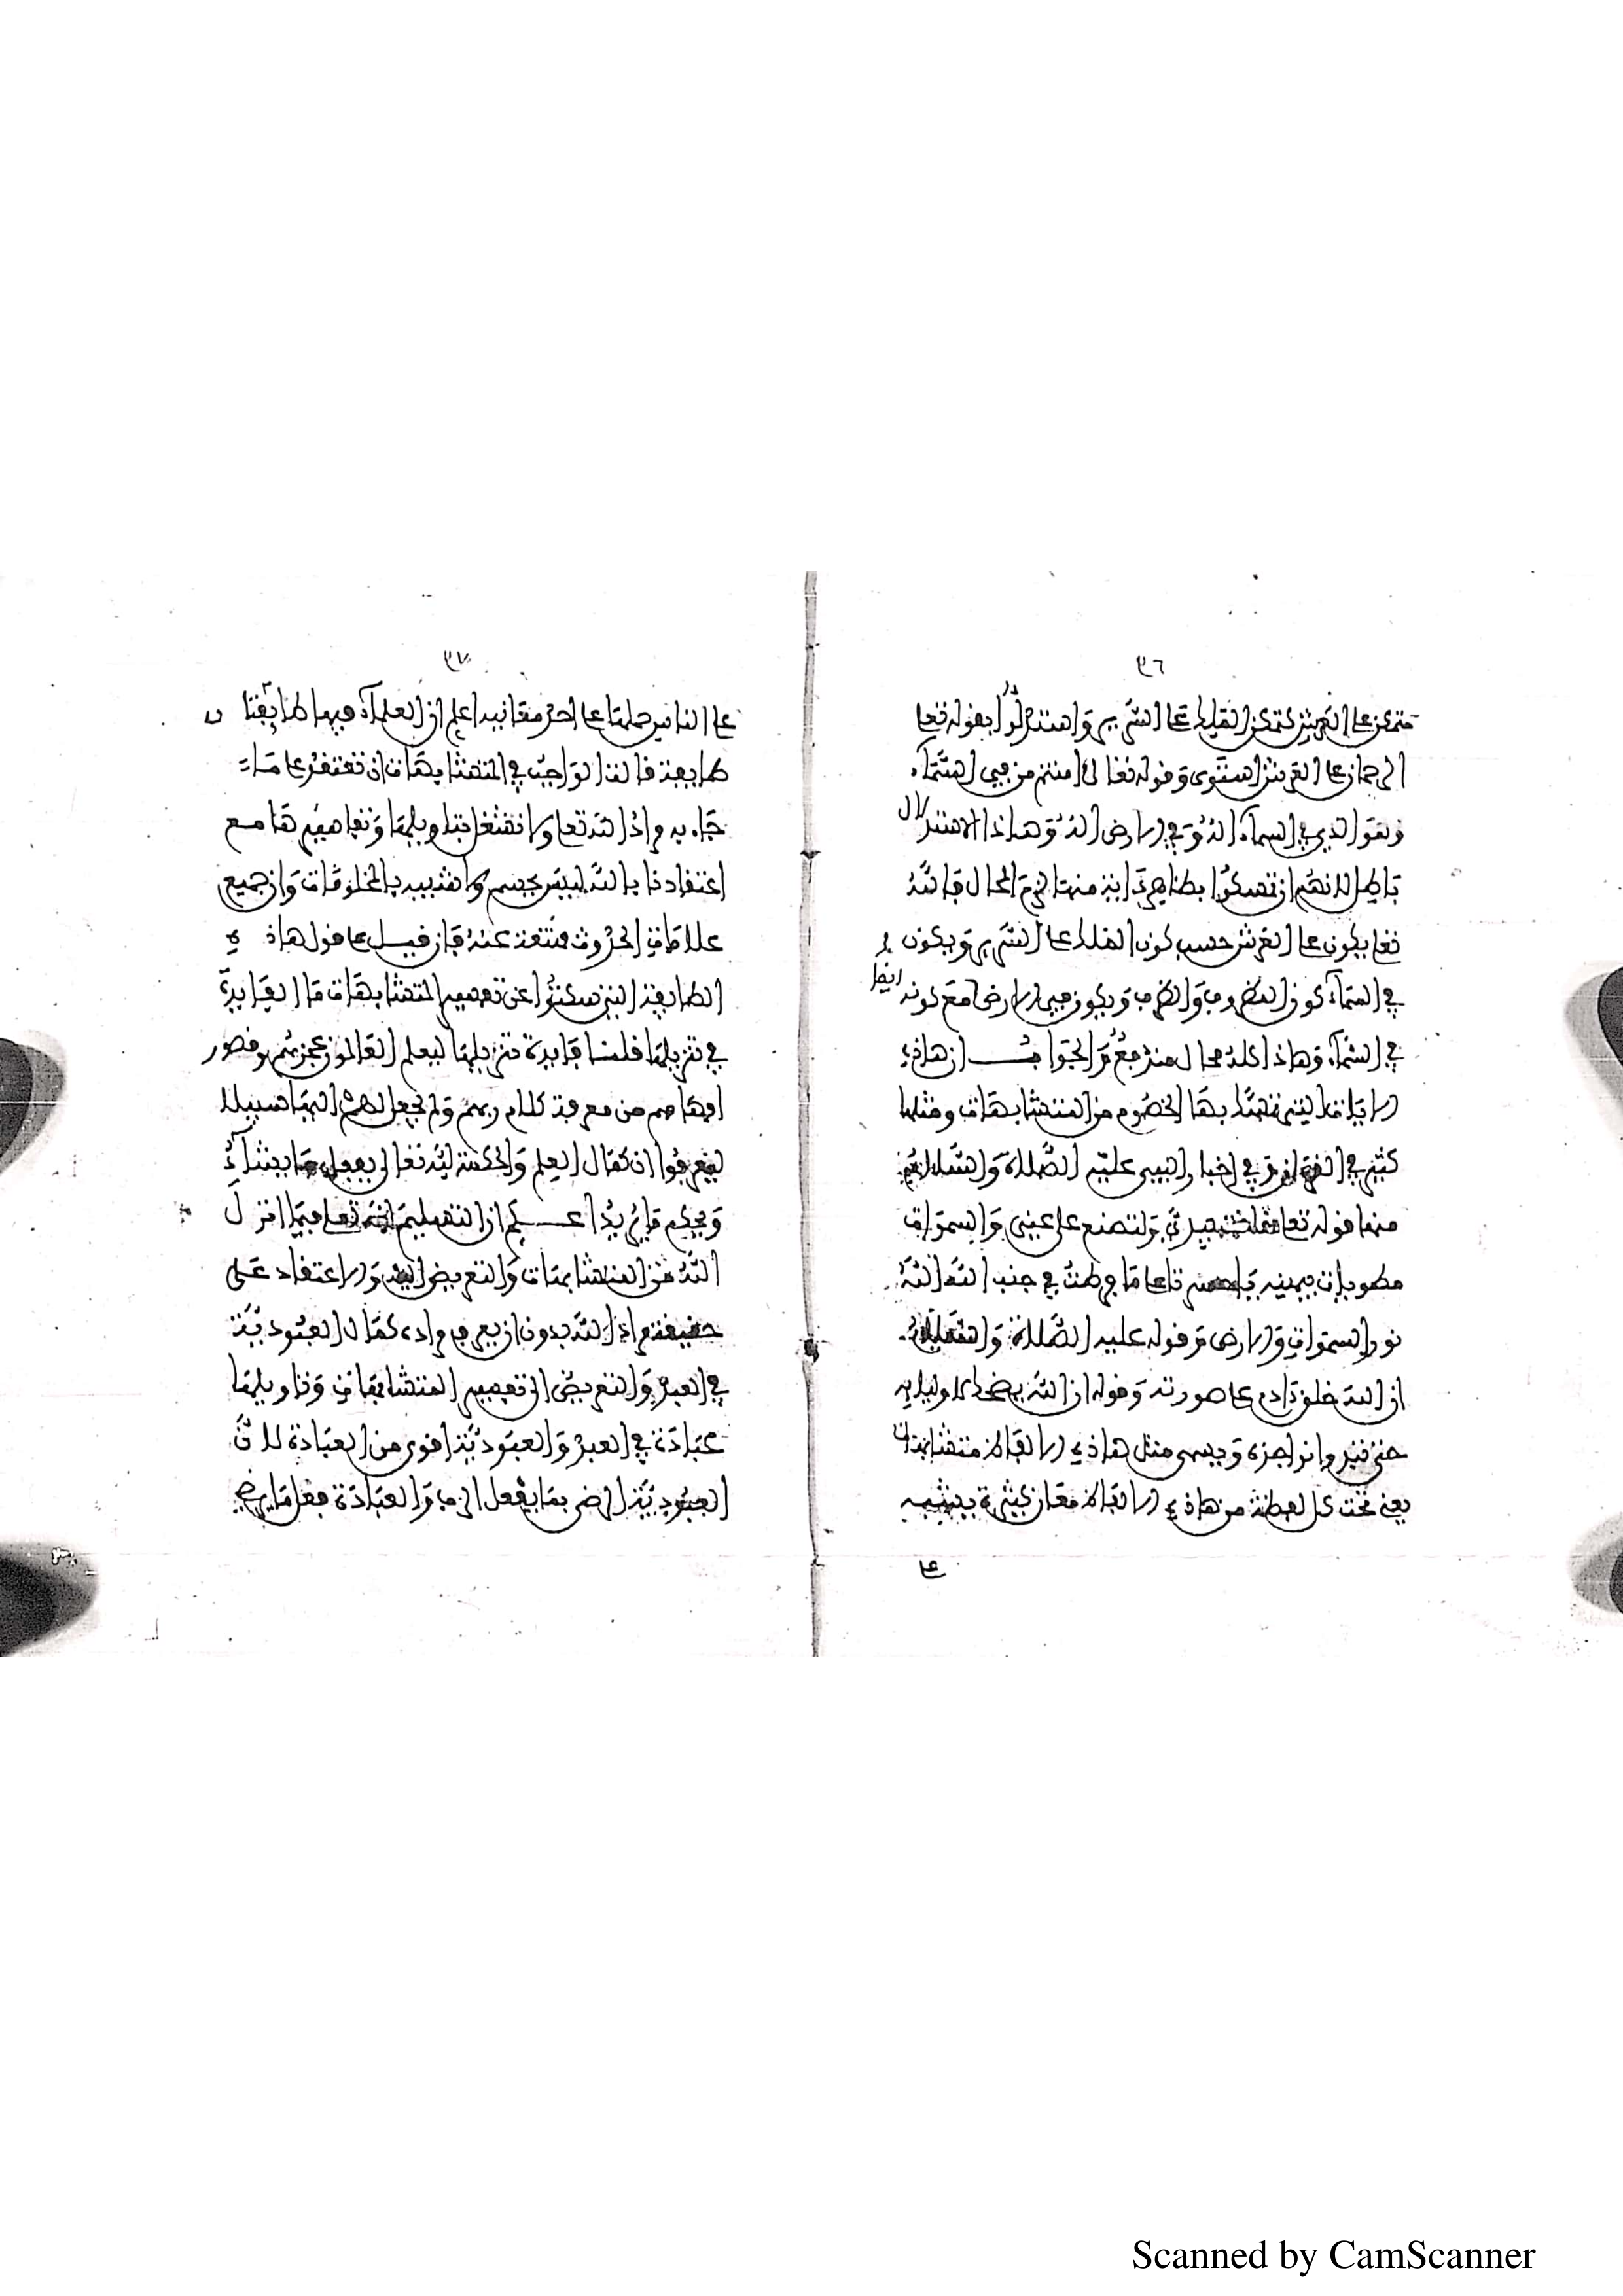 ٩٦
متمكن على العرش كتمكن الملك على السرير واستدلوا بقوله تعالى
الرحمان على العرش استوى وقوله تعالى أأمنتم من في السماء
وهو الذي في السماء اله وفي الارض اله وهذا الاستدلال
باطل لانهم ان تمسكوا بظاهر اية منها لزم المحال فالله
تعالى يكون على العرش حسب كون الملك على السرير ويكون
في السماء كون المظروف والظرف ويكون في الارض مع كونه ايضا
في السماء وهاذا كله محال عندهم والجواب ان هاذه
الايات التي تمسك بها الخصوم من المتشابهات ومثلها
كثير في القرءان وفي اخبار النبي عليه الصلاة والسلام
منها قوله تعالى خلقت بيدي ولتصنع على عيني والسموات
مطويات بيمينه يا حسرتا على ما فرطت في جنب الله الله
نور السموات والارض وقوله عليه الصلاة والسلام
ان الله خلق ءادم على صورته وقوله ان الله يضحك لاوليايه
حتى تبدوا نواجذه ويسمى مثل هاذه الالفاظ متشابهات
يعني تحت كل لفظة من هاذه الالفاظ معان كثيرة يشتبه
على
٩٧
على الناس حملها على احد معانيه اعلم ان العلماء فيها طايفتان
طايفة قالت الواجب في المتشابهات ان نعتقد على ما
جاء به مراد الله تعالى ولا نشتغل بتاويلها وتفاهيمها مع
اعتقادنا بالله ليس بجسم ولا شبيه بالمخلوقات وان جميع
علامات الحدوث منتفية عنه فان قيل على قول هاذه
الطايفة الذين سكتوا عن تفهيم المتشابهات ما الفايدة
في تنزيلها قلنا فايدة تنزيلها ليعلم العالمون عجزهم وقصور
افهامهم من معرفة كلام ربهم ولم يجعل لهم اليها سبيلا
ليعرفوا ان كمال العلم والحكمة لله تعالى يفعل ما يشاء
ويحكم ما يريد اعلم ان التسليم لله تعالى فيما انزل
الله من المتشابهات والتعويض اليه والاعتقاد على
حقيقة مراد الله بدون ان يعرف مراده كمال العبودية
في العبد والتعويض الى تفهيم المتشابهات وتاويلها
عبادة في العبد والعبودية اقوى من العبادة لان
العبودية الرضى بما يفعل الرب والعبادة فعل ما يرضي
Scanned by CamScanner